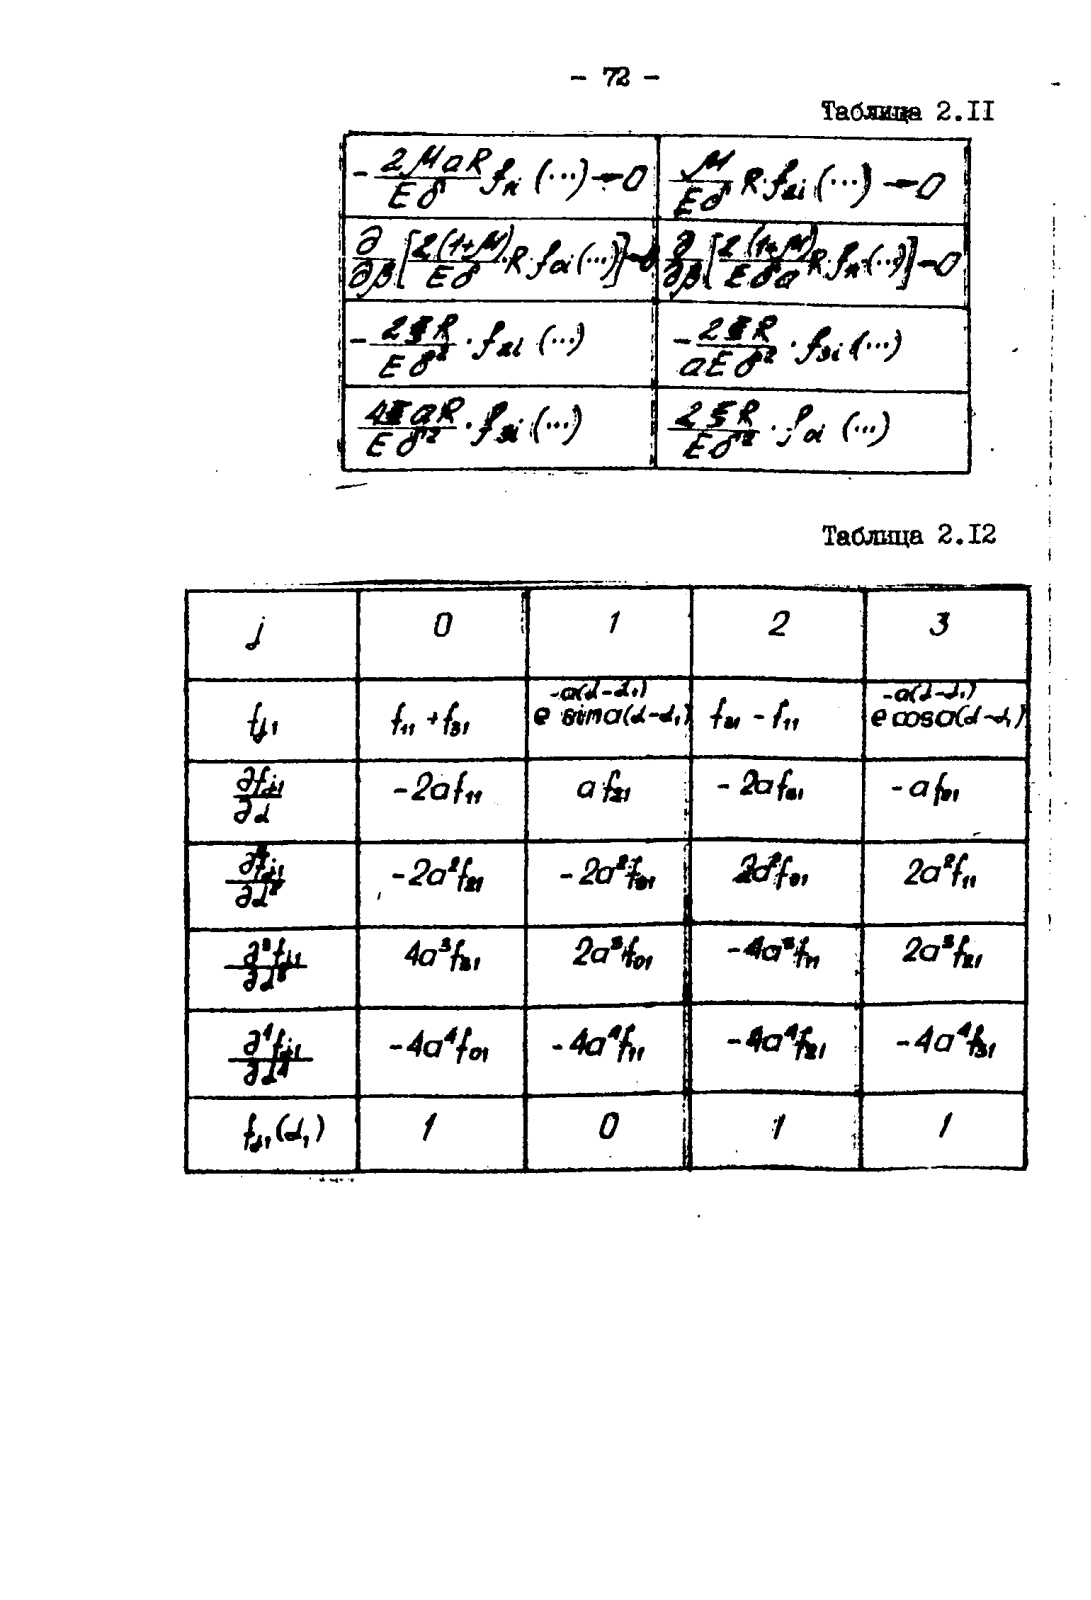 - 72 -
Таблица 2.II
-\frac{2μaR}{Eδ} f_{1i} (...)→0 | \frac{μ}{Eδ} R·f_{2i} (...)→0
\frac{∂}{∂β}[\frac{2(1+μ)}{Eδ}·R·f_{0i}(...)]→0 | \frac{∂}{∂β}[\frac{2(1+μ)}{Eδa} R·f_{1i}·(...)]→0
-\frac{2ξR}{Eδ^2}·f_{2i} (...) | -\frac{2ξR}{aEδ^2}·f_{3i} (...)
\frac{4ξaR}{Eδ^2}·f_{3i} (...) | \frac{2ξR}{Eδ^2}·f_{0i} (...)
Таблица 2.I2
j | 0 | 1 | 2 | 3
f_{j1} | f_{11} + f_{31} | e^{-a(α-α_1)} sin a(α-α_1) | f_{31} - f_{11} | e^{-a(α-α_1)} cos a(α-α_1)
\frac{∂f_{j1}}{∂α} | -2af_{11} | af_{21} | -2af_{31} | -af_{01}
\frac{∂^2f_{j1}}{∂α^2} | -2a^2f_{21} | -2a^2f_{31} | 2a^2f_{01} | 2a^2f_{11}
\frac{∂^3f_{j1}}{∂α^3} | 4a^3f_{31} | 2a^3f_{01} | -4a^3f_{11} | 2a^3f_{21}
\frac{∂^4f_{j1}}{∂α^4} | -4a^4f_{01} | -4a^4f_{11} | -4a^4f_{21} | -4a^4f_{31}
f_{j1}(α_1) | 1 | 0 | 1 | 1